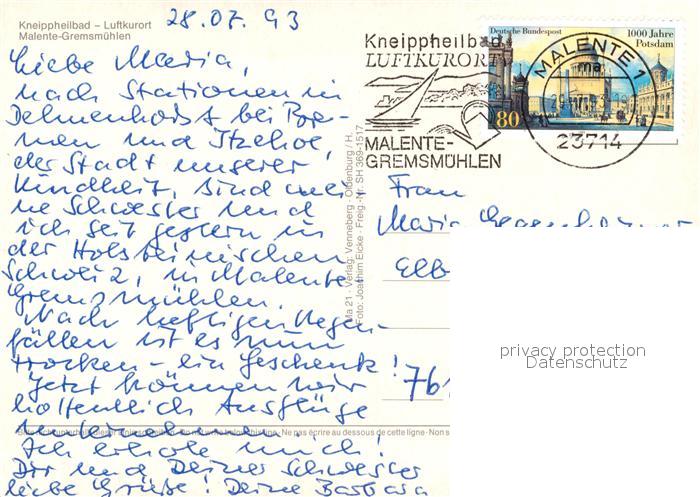 Kneippheilbad – Luftkurort
Malente-Gremsmühlen
28.07.93
Liebe Maria,
nach Stationen in
Delmenhorst bei Bre-
men und Itzehoe,
der Stadt unserer
Kindheit, sind mei-
ne Schwester und
ich seit gestern in
der Holsteinischen
Schweiz, in Malente
Gremsmühlen.
Nach heftigen Regen-
fällen ist es nun
trocken - ein Geschenk!
Jetzt können wir
hoffentlich Ausflüge
unternehmen.
Ich erhole mich!
Dir und Deiner Schwester
liebe Grüße! Deine Barbara
Ma 21 - Verlag: Venneberg - Oldenburg / H.
Foto: Joachim Eicke - Freig.-Nr. SH 369-1517
Kneippheilbad
LUFTKURORT
MALENTE-
GREMSMÜHLEN
Deutsche Bundespost
1000 Jahre
Potsdam
80
MALENTE 1
ma
23714
Frau
Maria
Elb
761
Ne pas écrire au dessous de cette ligne
privacy protection
Datenschutz